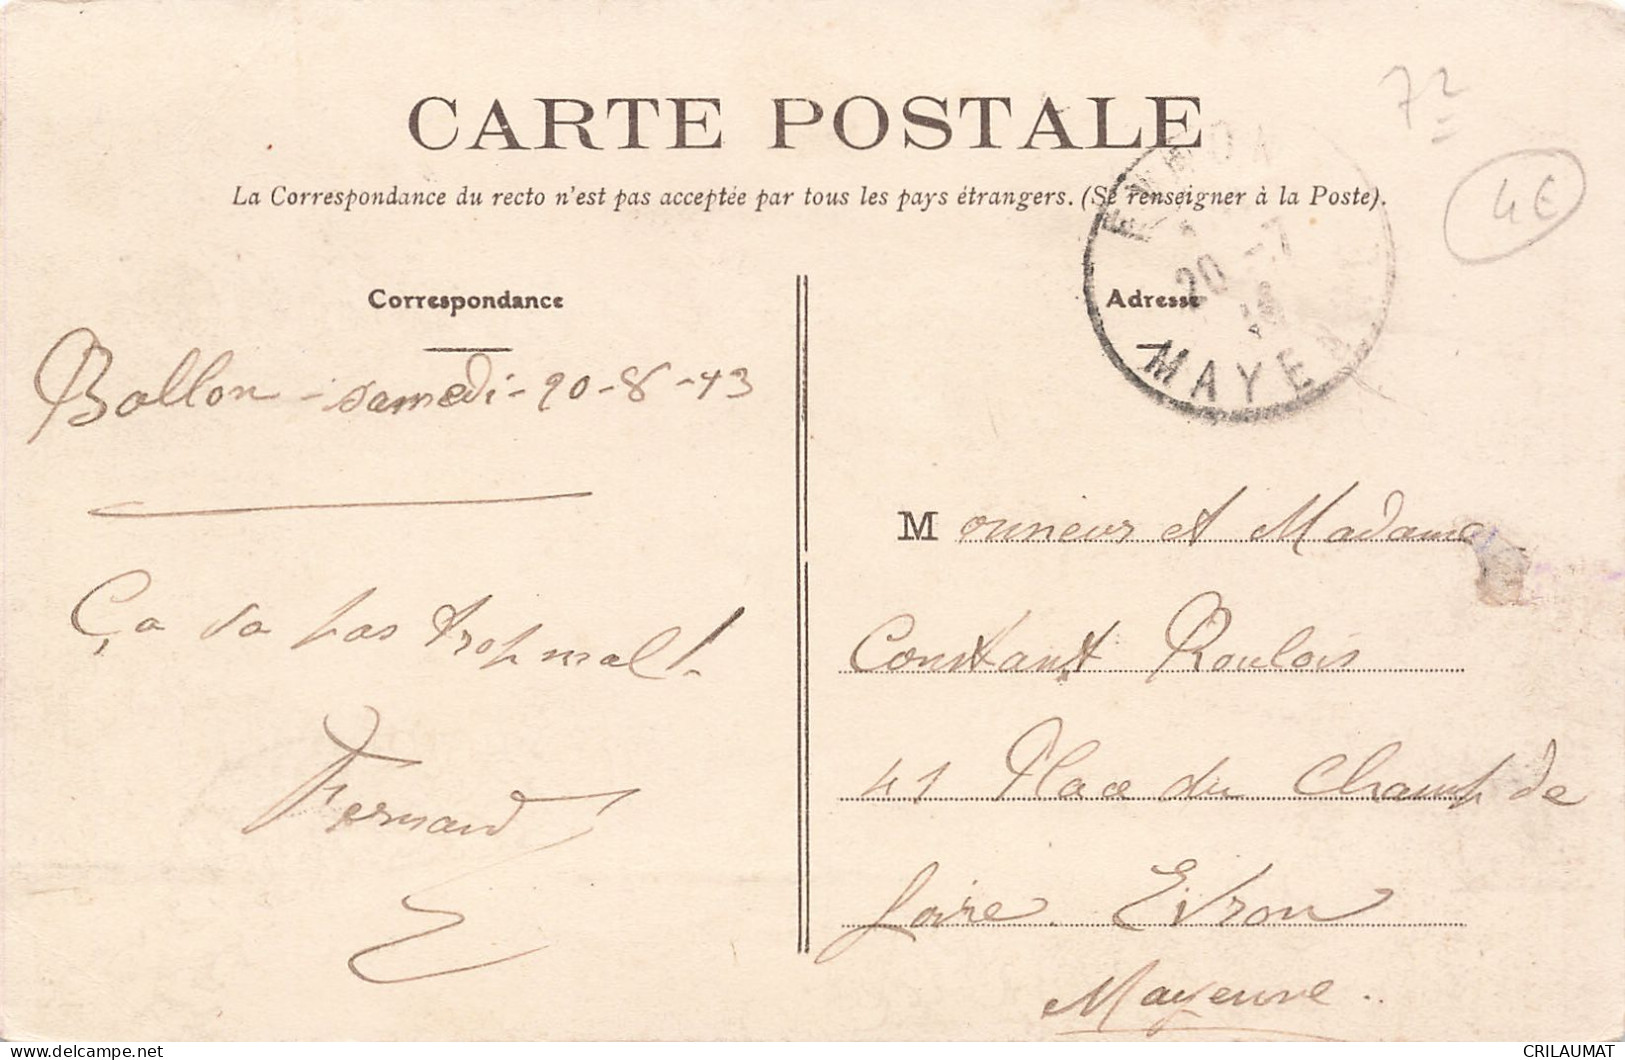 CARTE POSTALE
72
4€
La Correspondance du recto n'est pas acceptée par tous les pays étrangers. (Se renseigner à la Poste).
20 -7
MAYEN
Correspondance
Adresse
Ballon - samedi - 20-8-13
Ça va pas trop mal!
Fernand
Monsieur et Madame
Constant Roulois
41 Place du Champ de
foire. Evron
Mayenne..
CRILAUMAT